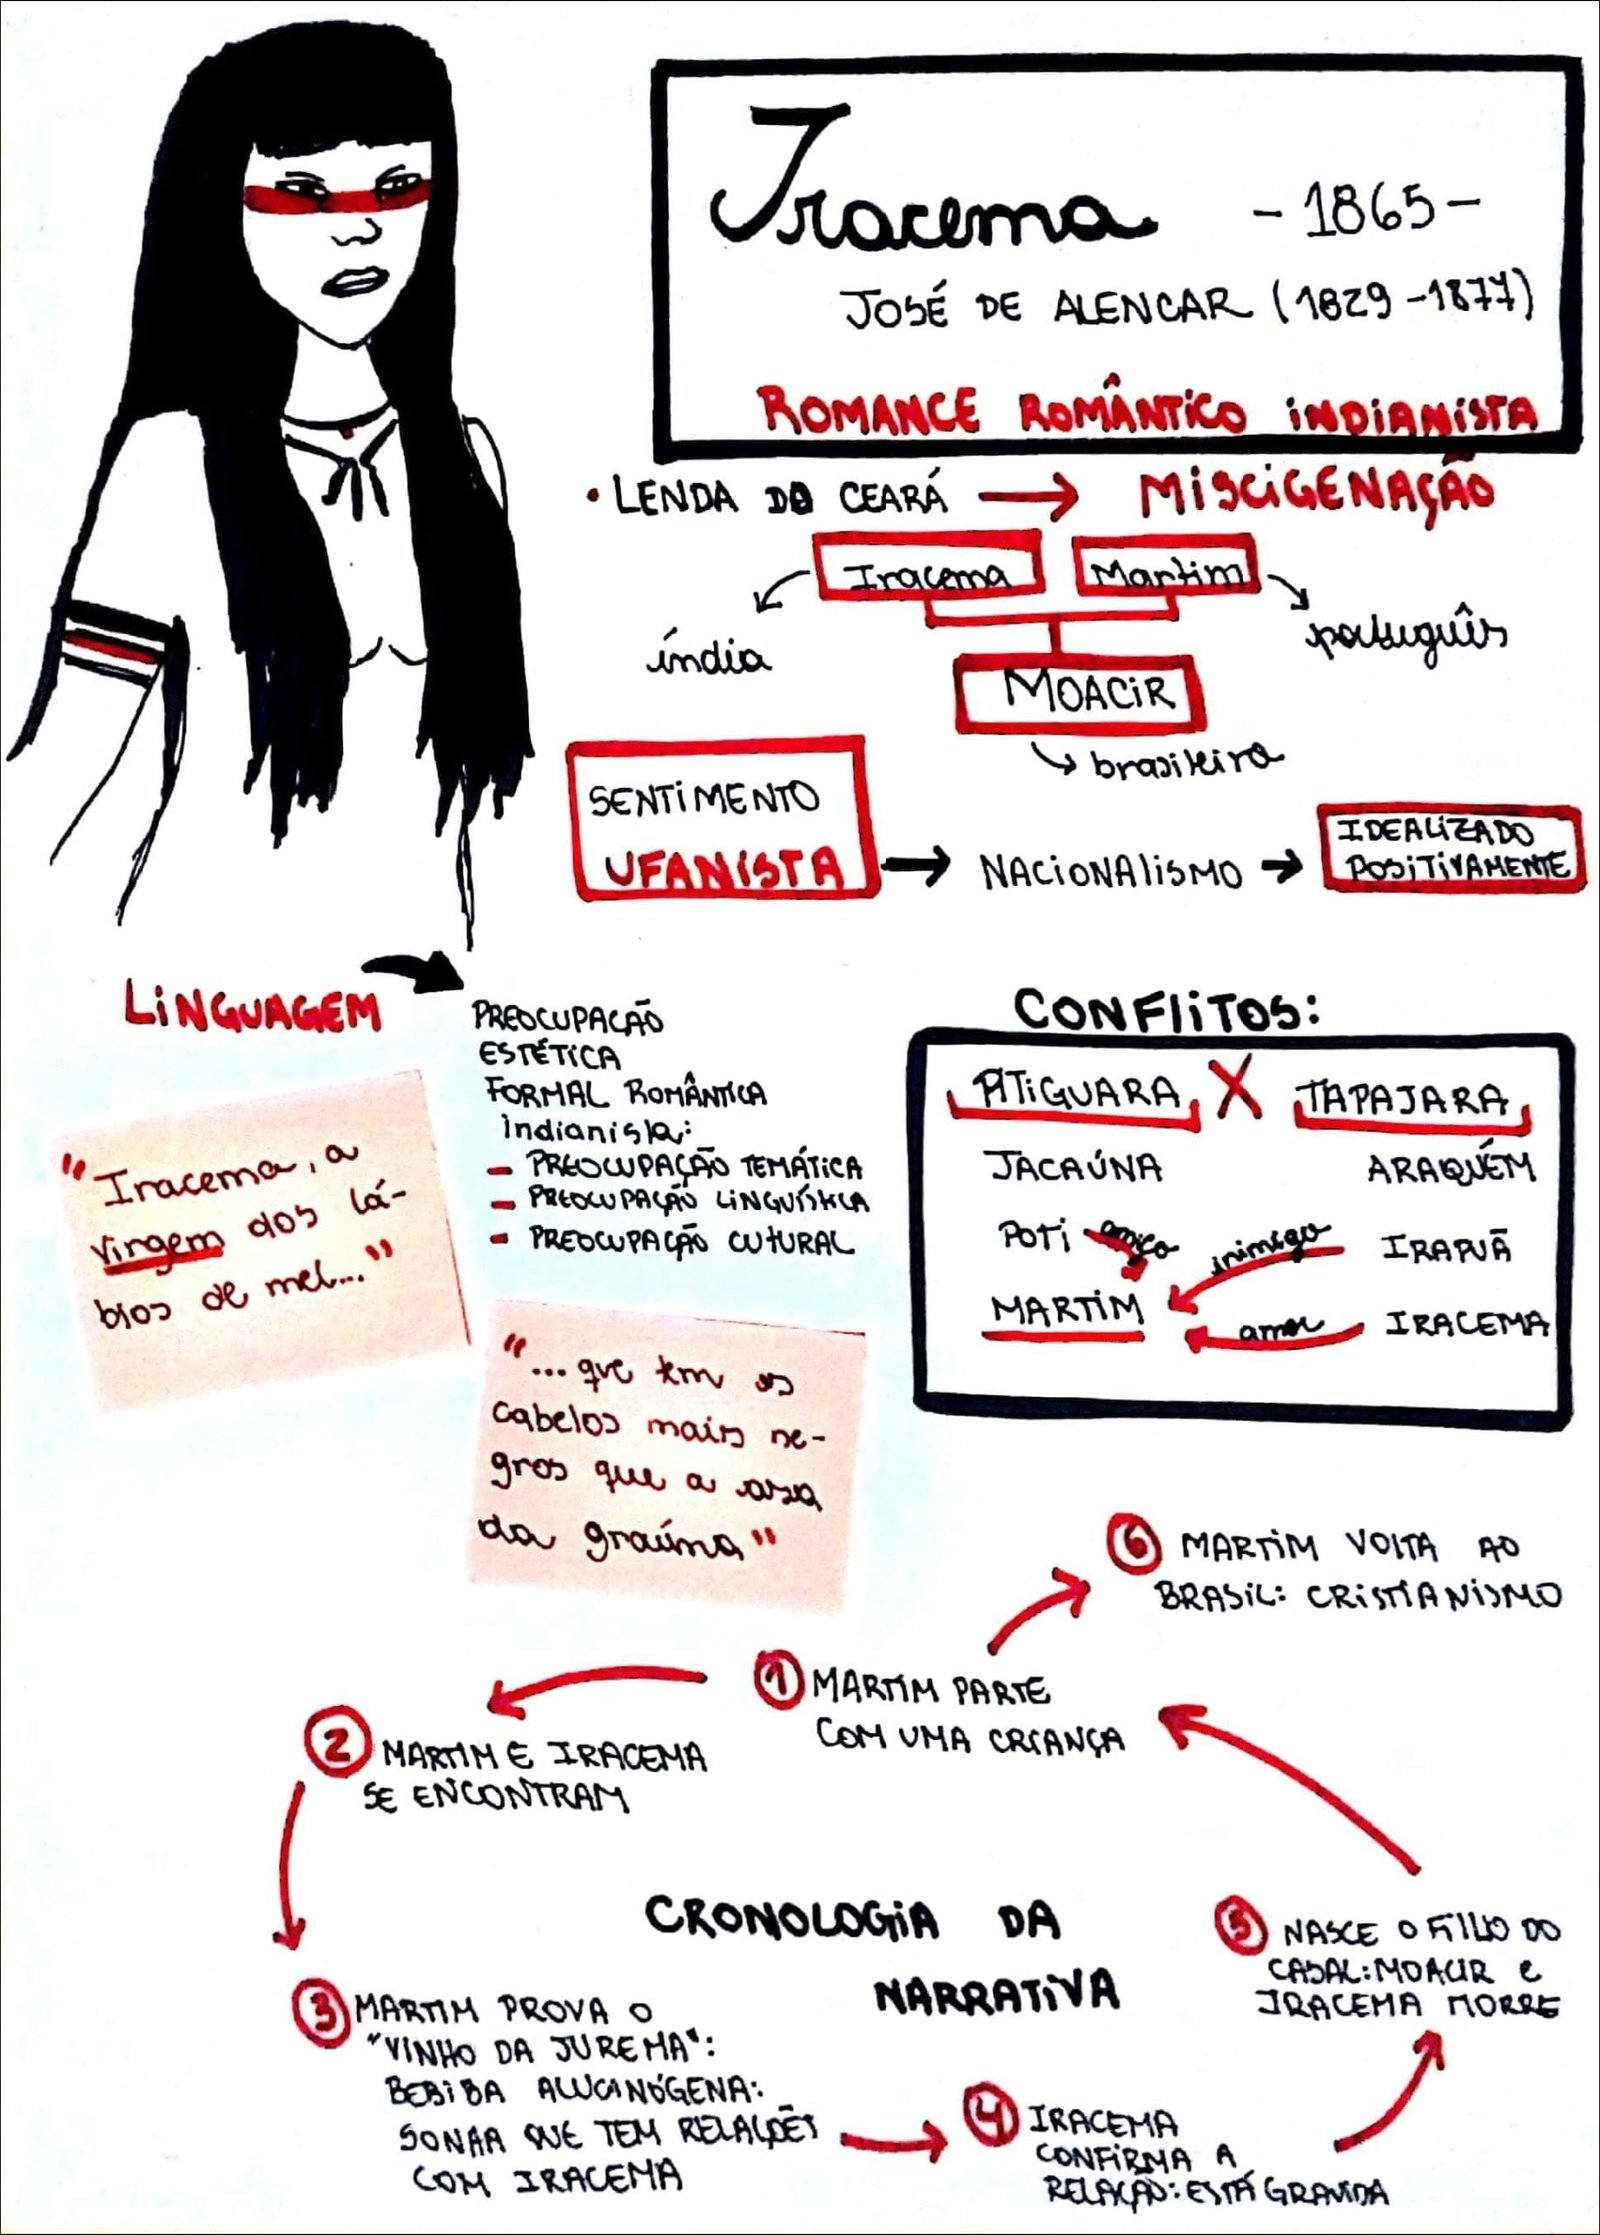 Iracema - 1865 -
JOSÉ DE ALENCAR (1829-1877)
ROMANCE ROMÂNTICO INDIANISTA
• LENDA DO CEARÁ → MISCIGENAÇÃO
Iracema Martim
índia
português
MOACIR
brasileiro
SENTIMENTO
UFANISTA → NACIONALISMO →
IDEALIZADO
POSITIVAMENTE
LINGUAGEM
PREOCUPAÇÃO
ESTÉTICA
FORMAL ROMÂNTICA
Indianista:
- PREOCUPAÇÃO TEMÁTICA
- PREOCUPAÇÃO LINGUÍSTICA
- PREOCUPAÇÃO CUTURAL
"Iracema, a
virgem dos lá-
bios de mel..."
"...que tem os
cabelos mais ne-
gros que a asa
da graúna"
CONFLITOS:
PITIGUARA X TAPAJARA
JACAÚNA ARAQUÉM
POTI amigo inimigo IRAPUÃ
MARTIM amor IRACEMA
6 MARTIM VOLTA AO
BRASIL: CRISTIANISMO
1 MARTIM PARTE
COM UMA CRIANÇA
2 MARTIM E IRACEMA
SE ENCONTRAM
CRONOLOGIA DA
NARRATIVA
3 MARTIM PROVA O
"VINHO DA JUREMA":
BEBIBA ALUCINÓGENA:
SONHA QUE TEM RELAÇÕES
COM IRACEMA
4 IRACEMA
CONFIRMA A
RELAÇÃO: ESTÁ GRAVIDA
5 NASCE O FILHO DO
CASAL: MOACIR e
IRACEMA MORRE